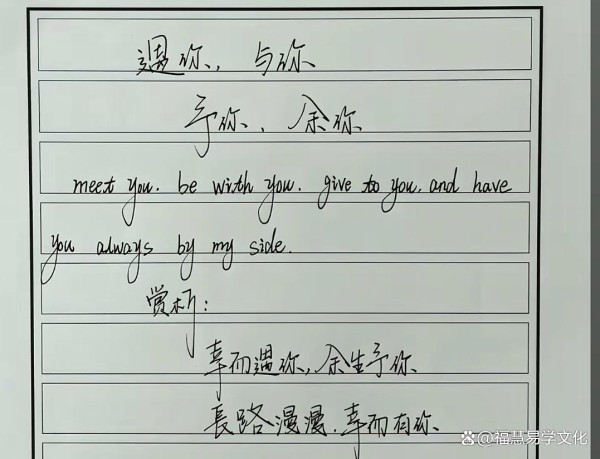 遇你,与你
予你、余你
meet you. be with you. give to you. and have
you always by my side.
赏析:
幸而遇你,余生予你
長路漫漫.幸而有你
@福慧易学文化